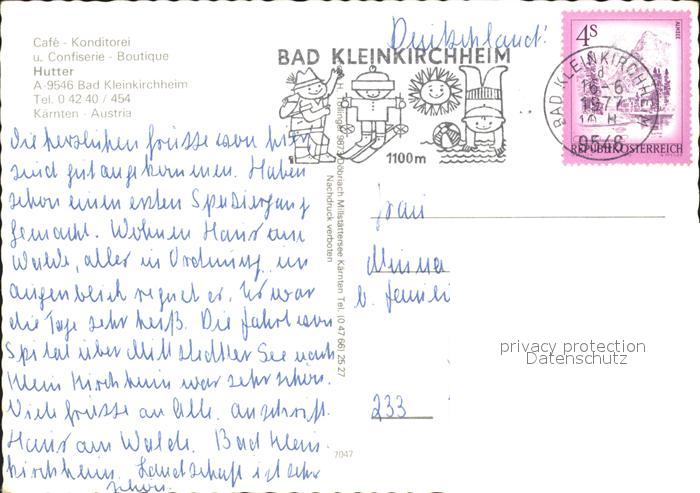 Café - Konditorei
u. Confiserie - Boutique
Hutter
A-9546 Bad Kleinkirchheim
Tel. 0 42 40 / 454
Kärnten - Austria
Deutschland!
BAD KLEINKIRCHHEIM
1100m
4S
ALMSEE
REPUBLIK ÖSTERREICH
BAD KLEINKIRCHHEIM
16-6
1977
9546
Die herzlichen Grüsse von hier
sind gut angekommen. Haben
schon einen ersten Spaziergang
gemacht. Wohnen Haus am
Walde, aller in Ordnung, im
Augenbleick regnet es. Es war
die Tage sehr heiß. Die Fahrt von
Spital über Millstädtler See nach
Klein Kirchheim war sehr schön.
Viele Grüsse an Alle. Anschrift.
Haus am Walde. Bad Klein-
kirchheim. Landschaft ist sehr
schön.
9873 Döbriach Millstättersee Kärnten Tel. (0 47 66) 25 27
Nachdruck verboten
7047
Frau
Minna
b. Famili
233
privacy protection
Datenschutz